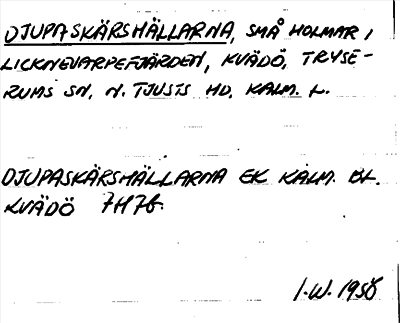 DJUPASKÄRSHÄLLARNA, SMÅ HOLMAR I
LICKNEVARPEFJÄRDEN, KVÄDÖ, TRYSE-
RUMS SN, N. TJUSTS HD, KALM. L.
DJUPASKÄRSHÄLLARNA EK KALM. BL.
KVÄDÖ 7H7f.
I.W. 1958